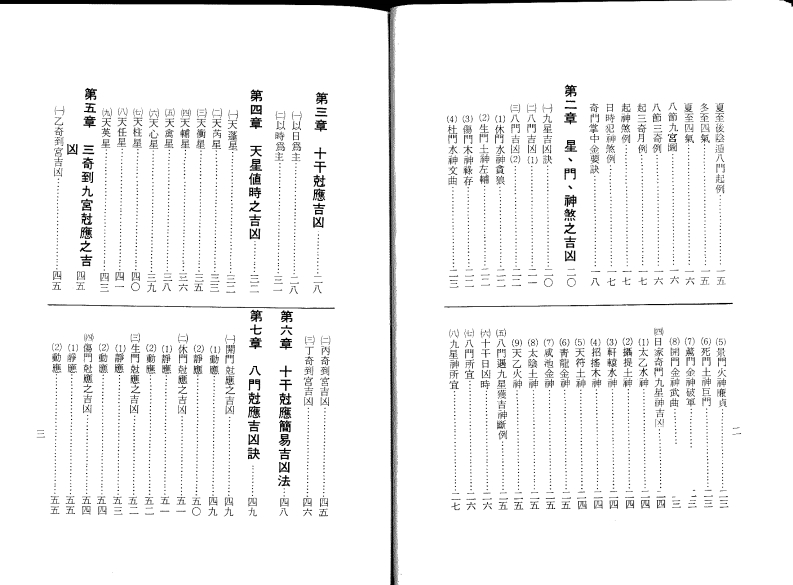 夏至後陰遁八門起例⋯⋯一五
冬至四氣⋯⋯一五
夏至四氣⋯⋯一六
八節九宮圖⋯⋯一六
八節三奇例⋯⋯一六
起三奇月例⋯⋯一七
起神煞例⋯⋯一七
日時犯神煞例⋯⋯一七
奇門掌中金要訣⋯⋯一八
第二章 星、門、神煞之吉凶⋯⋯二〇
㈠九星吉凶訣⋯⋯二〇
㈡八門吉凶⑴⋯⋯二一
㈢八門吉凶⑵⋯⋯二二
⑴休門水神貪狼⋯⋯二二
⑵生門土神左輔⋯⋯二二
⑶傷門木神祿存⋯⋯二二
⑷杜門水神文曲⋯⋯二三
⑸景門火神廉貞⋯⋯二三
⑹死門土神巨門⋯⋯二三
⑺驚門金神破軍⋯⋯二三
⑻開門金神武曲⋯⋯二三
㈣日家奇門九星神吉凶⋯⋯二四
⑴太乙水神⋯⋯二四
⑵攝提土神⋯⋯二四
⑶軒轅水神⋯⋯二四
⑷招搖木神⋯⋯二四
⑸天符土神⋯⋯二四
⑹青龍金神⋯⋯二五
⑺咸池金神⋯⋯二五
⑻太陰土神⋯⋯二五
⑼天乙火神⋯⋯二五
㈤八門遇九星獲吉神斷例⋯⋯二五
㈥十干日凶時⋯⋯二六
㈦八門所宜⋯⋯二六
㈧九星神所宜⋯⋯二七
二
第三章 十干尅應吉凶⋯⋯二八
㈠以日為主⋯⋯二八
㈡以時為主⋯⋯三一
第四章 天星值時之吉凶⋯⋯三二
㈠天蓬星⋯⋯三二
㈡天芮星⋯⋯三三
㈢天衝星⋯⋯三五
㈣天輔星⋯⋯三六
㈤天禽星⋯⋯三八
㈥天心星⋯⋯三九
㈦天柱星⋯⋯四〇
㈧天任星⋯⋯四一
㈨天英星⋯⋯四三
第五章 三奇到九宮尅應之吉
凶⋯⋯四五
㈠乙奇到宮吉凶⋯⋯四五
㈡丙奇到宮吉凶⋯⋯四五
㈢丁奇到宮吉凶⋯⋯四六
第六章 十干尅應簡易吉凶法⋯四八
第七章 八門尅應吉凶訣⋯⋯四九
㈠開門尅應之吉凶⋯⋯四九
⑴動應⋯⋯四九
⑵靜應⋯⋯五〇
㈡休門尅應之吉凶⋯⋯五一
⑴靜應⋯⋯五一
⑵動應⋯⋯五二
㈢生門尅應之吉凶⋯⋯五二
⑴靜應⋯⋯五三
⑵動應⋯⋯五四
㈣傷門尅應之吉凶⋯⋯五四
⑴靜應⋯⋯五五
⑵動應⋯⋯五五
三